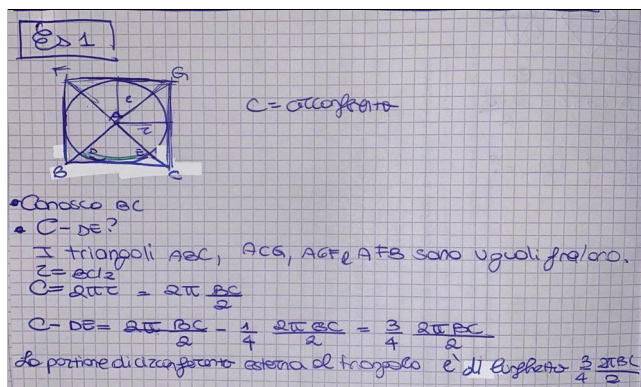 Es 1
F G
C = circonferenza
r
A r
D E
B C
• Conosco BC
• C - DE?
I triangoli ABC, ACG, AGF e AFB sono uguali fra loro.
r = BC/2
C = 2πr = 2π BC/2
C - DE = 2π BC/2 - 1/4 2π BC/2 = 3/4 2πBC/2
La porzione di circonferenza esterna al triangolo è di lunghezza 3/4 2πBC/2